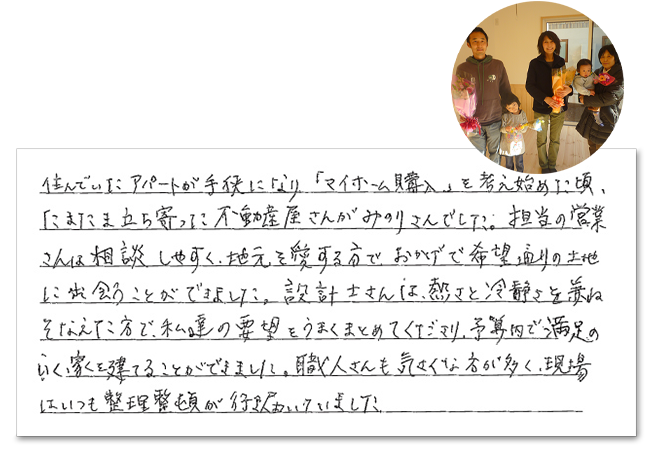 住んでいたアパートが手狭になり「マイホーム購入」を考え始めた頃、
たまたま立ち寄った不動産屋さんがみのりさんでした。担当の営業
さんは相談しやすく、地元を愛する方で、おかげで希望通りの土地
に出会うことができました。設計士さんは、熱さと冷静さを兼ね
そなえた方で私達の要望をうまくまとめてくださり、予算内で満足の
いく家を建てることができました。職人さんも気さくな方が多く、現場
はいつも整理整頓が行き届いていました